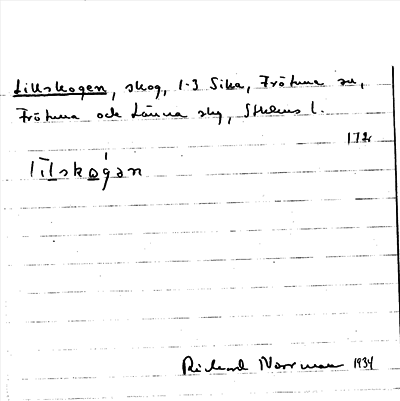 Lillskogen, skog, 1-3 Sika, Frötuna sn,
Frötuna och Länna skg, Sthlms l.
172
lilskogən
Richard Norrman 1934